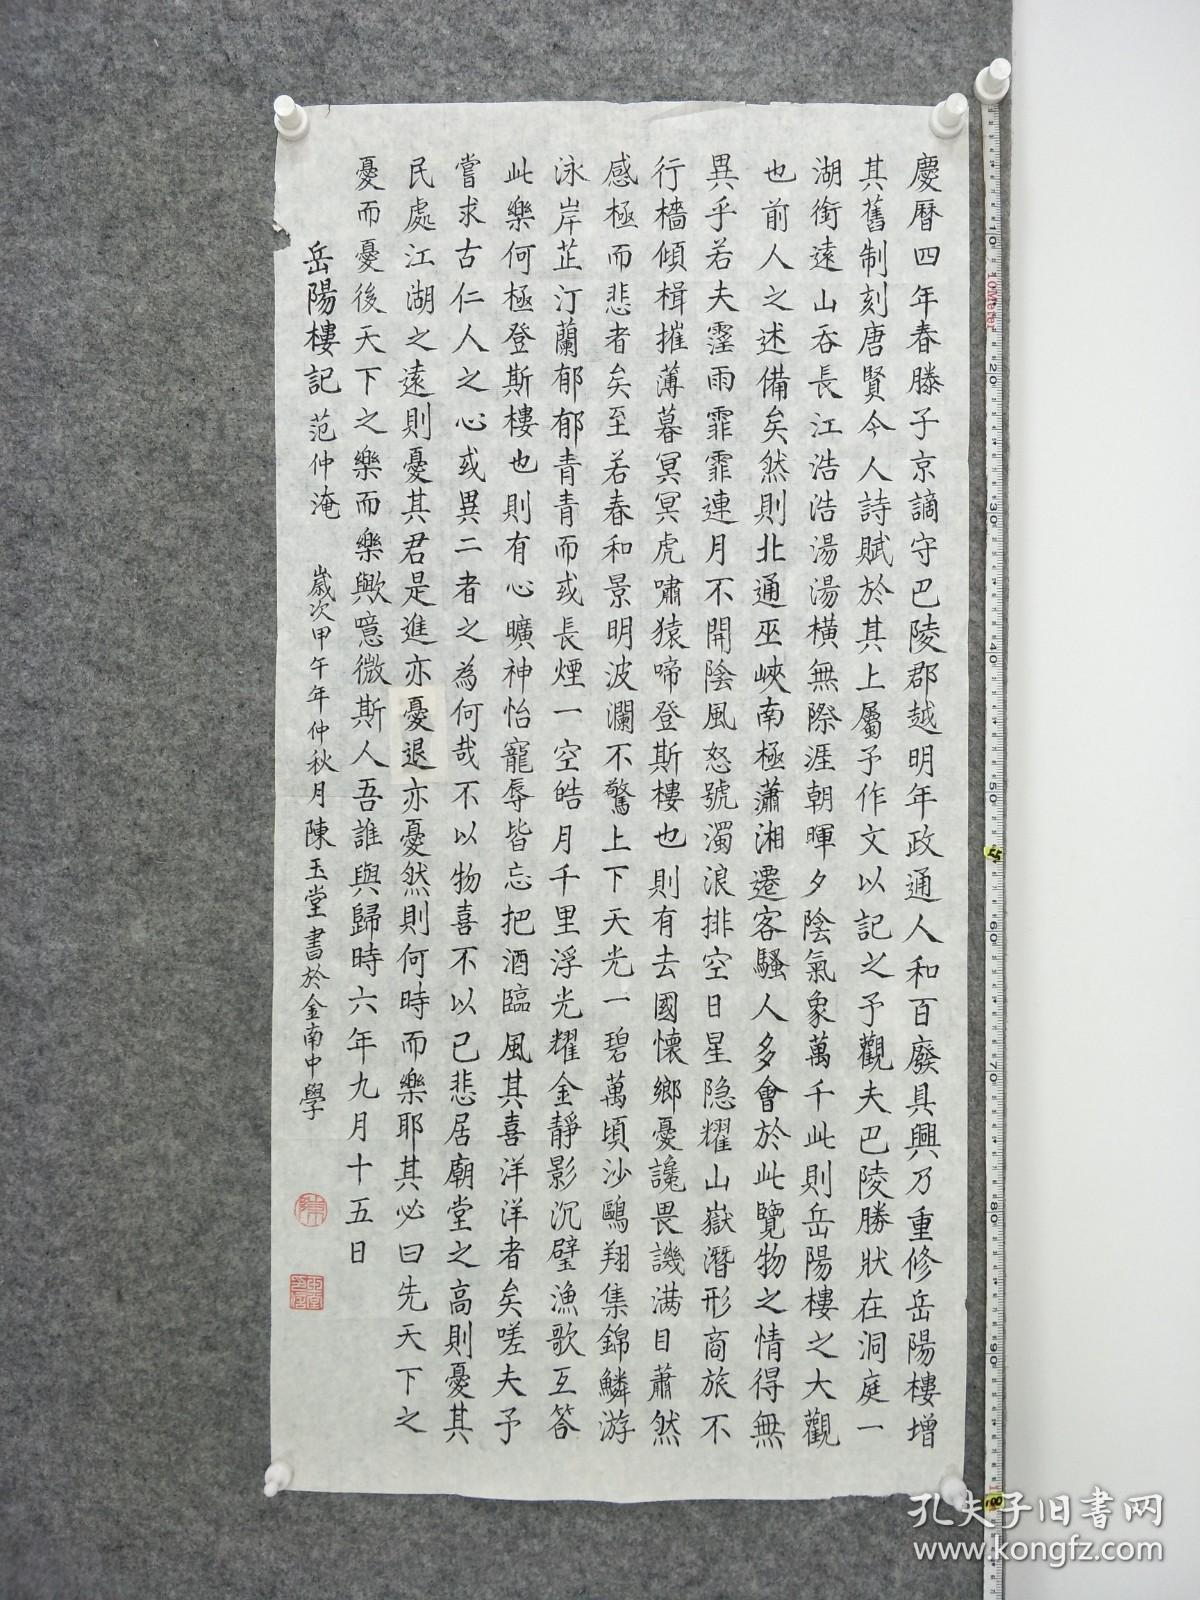 慶曆四年春滕子京謫守巴陵郡越明年政通人和百廢具興乃重修岳陽樓增
其舊制刻唐賢今人詩賦於其上屬予作文以記之予觀夫巴陵勝狀在洞庭一
湖銜遠山吞長江浩浩湯湯橫無際涯朝暉夕陰氣象萬千此則岳陽樓之大觀
也前人之述備矣然則北通巫峽南極瀟湘遷客騷人多會於此覽物之情得無
異乎若夫霪雨霏霏連月不開陰風怒號濁浪排空日星隐耀山嶽潛形商旅不
行檣傾楫摧薄暮冥冥虎嘯猿啼登斯樓也則有去國懷鄉憂讒畏譏满目蕭然
感極而悲者矣至若春和景明波瀾不驚上下天光一碧萬頃沙鷗翔集錦鱗游
泳岸芷汀蘭郁郁青青而或長煙一空皓月千里浮光耀金靜影沉璧漁歌互答
此樂何極登斯樓也則有心曠神怡寵辱皆忘把酒臨風其喜洋洋者矣嗟夫予
嘗求古仁人之心或異二者之為何哉不以物喜不以己悲居廟堂之高則憂其
民處江湖之遠則憂其君是進亦憂退亦憂然則何時而樂耶其必曰先天下之
憂而憂後天下之樂而樂歟噫微斯人吾誰與歸時六年九月十五日
岳陽樓記 范仲淹 歲次甲午年仲秋月陳玉堂書於金南中學
陳
孔夫子旧书网
www.kongfz.com
10Meter
10
20
30
40
50
55
60
70
80
90
100